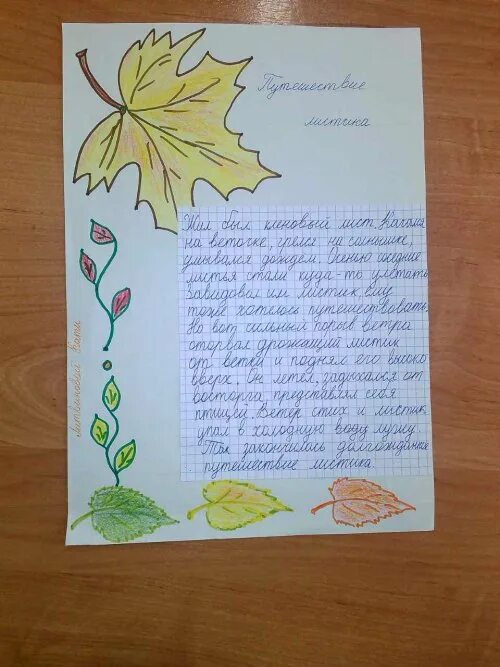 Путешествие
листика
Жил был кленовый лист. Качался
на веточке, грелся на солнышке,
умывался дождём. Осенью соседние
листья стали куда-то улетать.
Завидовал им листик, ему
тоже хотелось путешествовать.
Но вот сильный порыв ветра
оторвал дрожащий листик
от ветки и поднял его высоко
вверх. Он летел, задыхался от
восторга, представлял себя
птицей. Ветер стих и листик
упал в холодную воду лужу
Так закончилась долгожданное
путешествие листика.
Литвиновой Кати